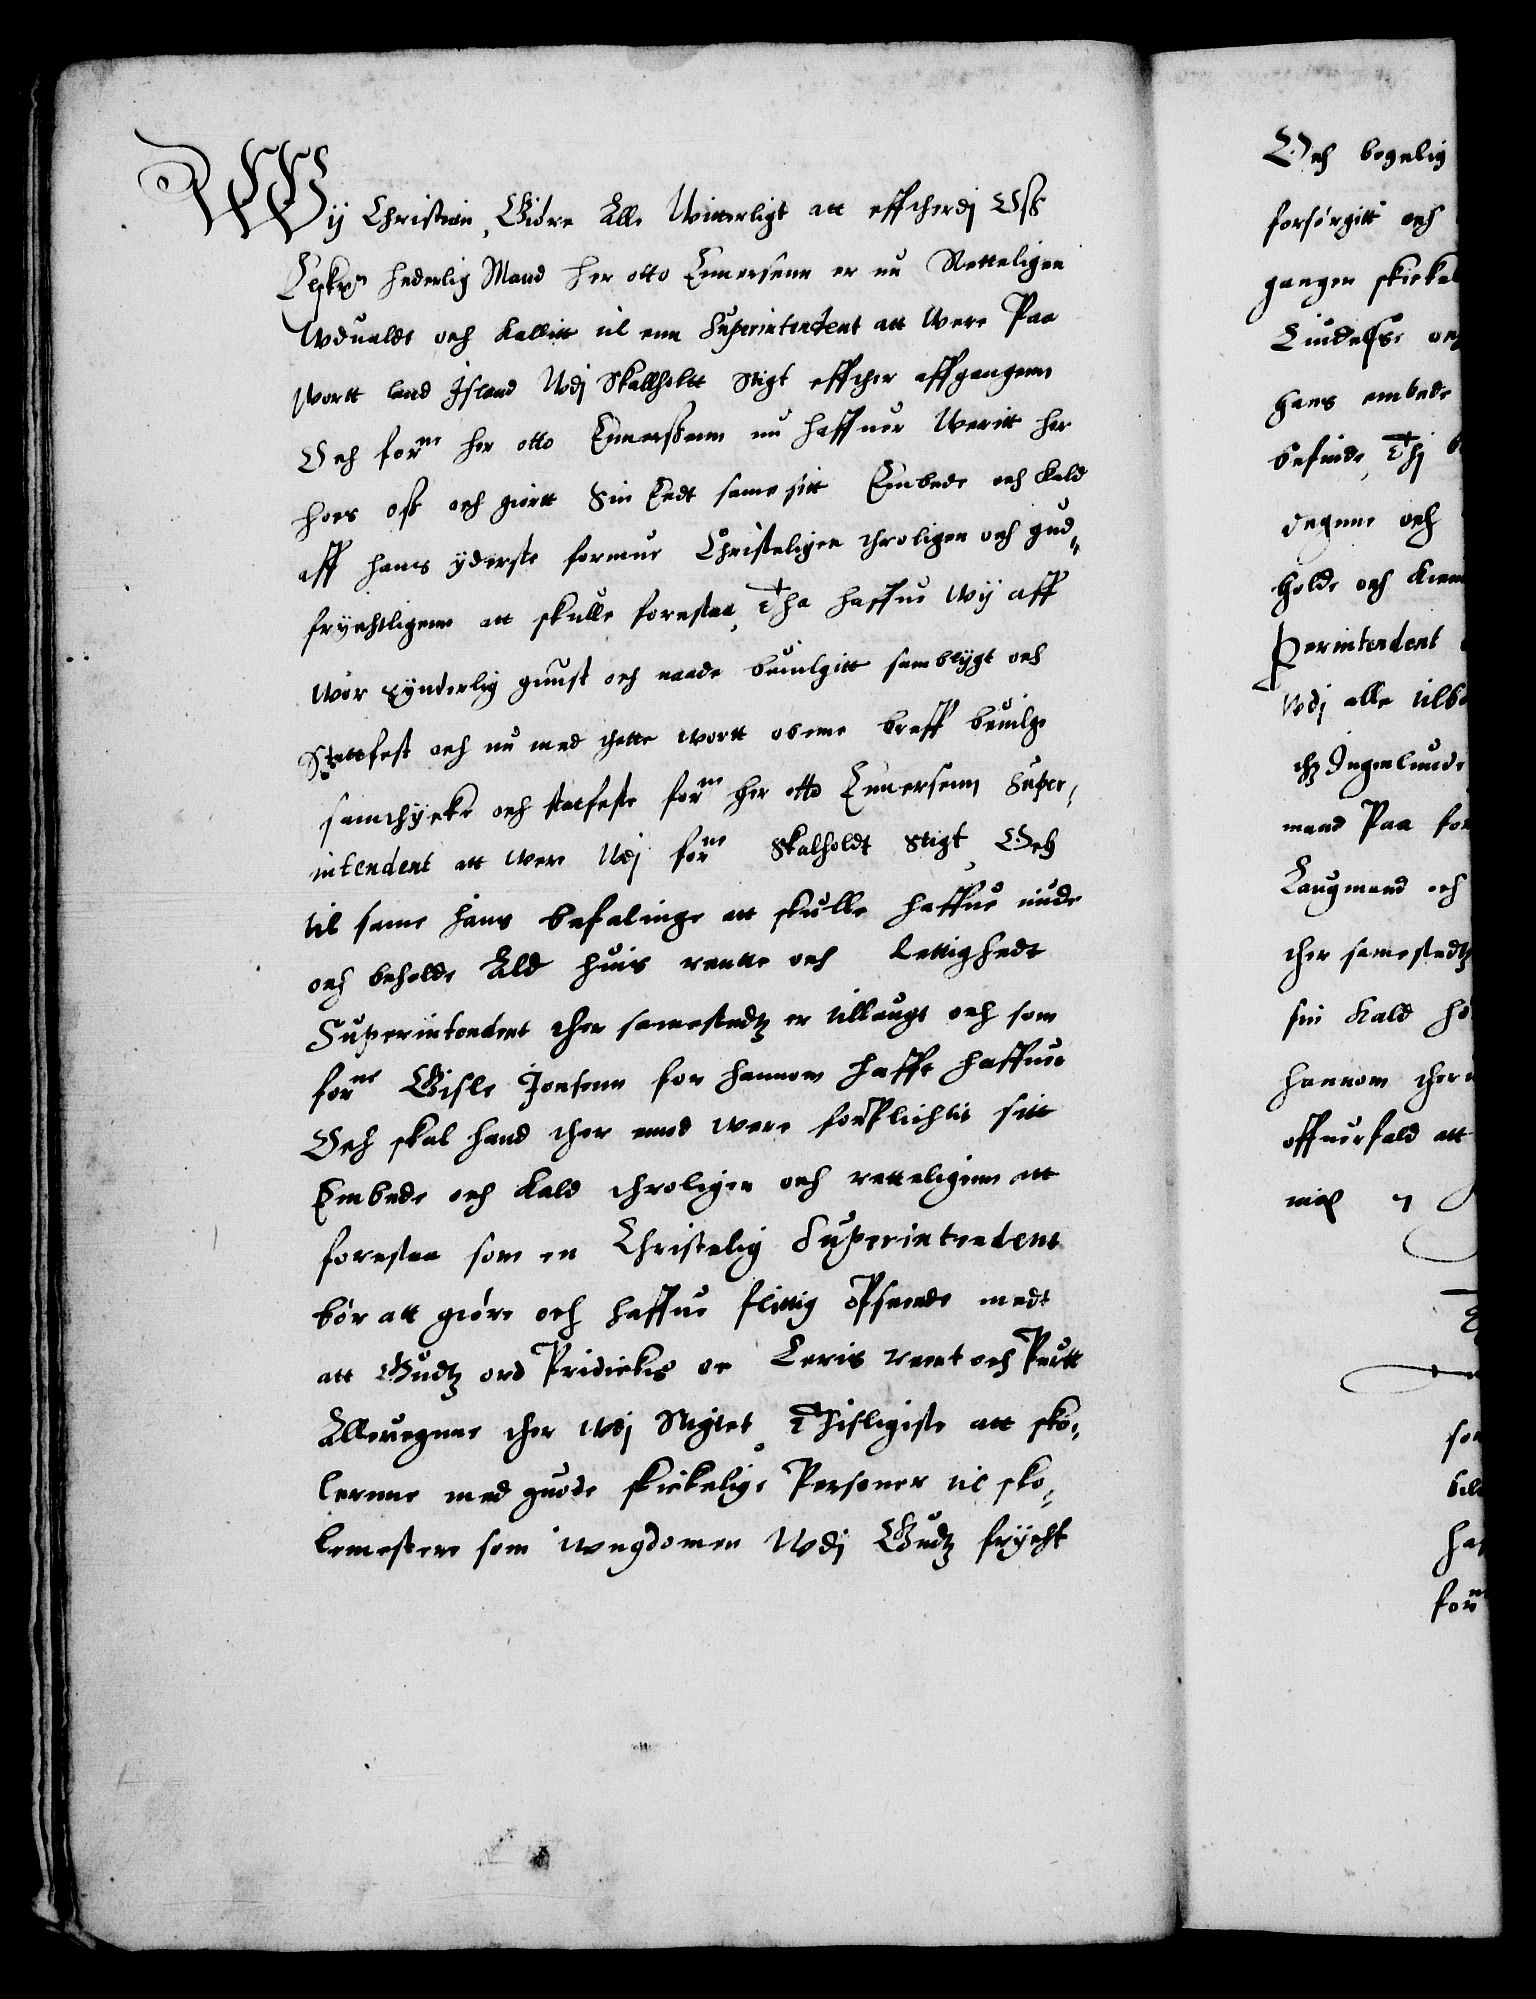 Wij Christian, Giöre Alle Witterligt att effthi Oss
Elskl. Hederlig Mand her otto Einersenn er nu Retteligen
Wduald och kallitt til enn Superintendent att Were Paa
Wortt land Jsland Wdj Skallholtt Stigt effther affgangenn
Och forne her otto Einersenn nu haffuer Weritt her
hoes oss och giortt Sin Eedt same sitt Embede och Kald
aff hans yderste formue Christeligen throligen och gud„
fryctligenn att skulle forestaa, Tha haffue Wij aff
Wor synderlig gunst och naade beuilgitt samtygt och
Stattfest och nu med thette wortt obenne breff beuilge
samthycke och statfeste forne her otto Einersenn Super„
intendent att were Udj forne Skalholdt Stigt, Och
til same hans befalinge att skulle haffue niude
och beholde Ald huis rentte och Rettighedt
Superintendent ther samestedtz er tillaugt och som
forne Gisle Jonsenn for hannom hafft haffuer
Och skal hand ther emod were forplichtit sitt
Embede och Kald throligen och retteligenn att
forestaa som en Christelig Superintendent
bör att giöre och haffue flittig Opseende medt
att Gudtz ord Predickis oc Leris reent och Purtt
Alleuegnne ther Wdj Stigtet, Thisligiste att sko„
lernne med guode skickelige Personer til sko„
lemestere som vngdomen Wdj Gudtz frycht
Och bogelig
forsörgitt och
gangen skickel
Liudelsse och
hans embede
befinde, Thj b
degnne och
holde och Kien
perintendent
Wdj alle tilb
thz Ingenlunde
mand Paa for
Laugmand och
ther samestedtz
sin Kald
hannom ther
offuerfald att
for